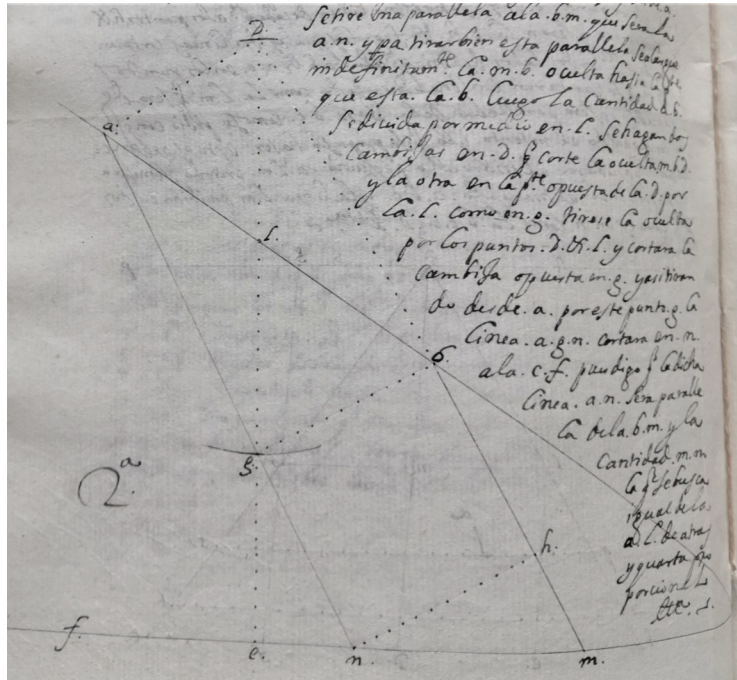 Setire una parallela ala .b.m. que sera la
a.n. y pa tirar bien esta parallela Sealargue
indefinitamte La .m.b. oculta hasta la pte
que esta. La .b. Luego la Cantidad a.b.
Se divida por medio en .l. Se hagan dos
Cambijas en .D. q corte La oculta m.b.D.
y la otra en la pte opuesta de la .D. por
La .l. como en .g. tirese la oculta
por los puntos .D. & .l. y cortara la
Cambija opuesta en .g. y asi tiran
do desde .a. por este punto .g. la
Linea .a.g.n. cortara en .n.
ala .c.f. pues digo q la dicha
Linea .a.n. Sera paralle
la de la .b.m. y la
Cantidad .m.n
la q Se busca
igual de la
.l. de atras
y quarta pro
porcional
D.
a.
l.
b
g.
2.a
h.
f.
e.
n.
m.